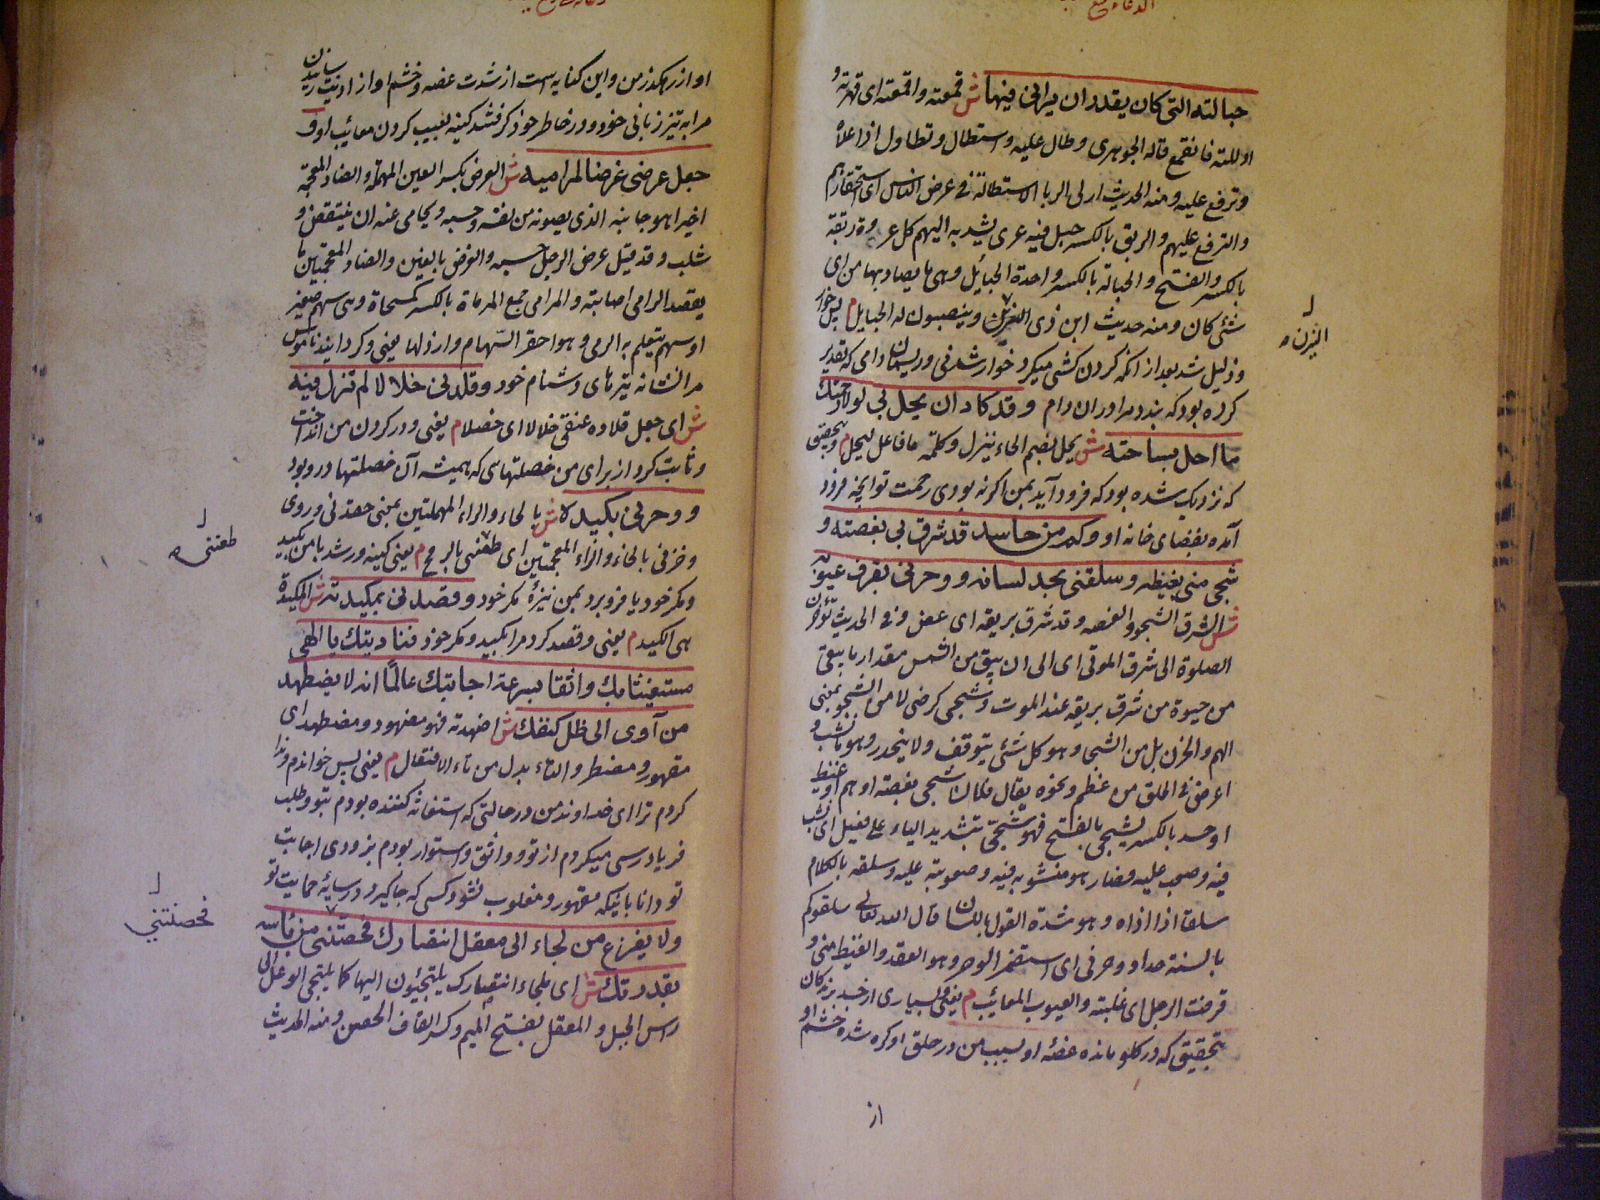 حبالته التی کان یقدر ان یرانی فیها ش قمعته و اقمعته ای قهرته و
اذللته فانقمع قاله الجوهری و طال علیه و استطال و تطاول اذا علاه
و ترفع علیه و منه الحدیث اربی الربا الاستطالة فی عرض الناس ای استحقارهم
و الترفع علیهم و الربق بالکسر حبل فیه عری یشد به البهم کل عروة ربقة
بالکسر و الفتح و الحبالة بالکسر واحدة الحبایل و هی ما یصاد بها من ای
شئ کان و منه حدیث ابن ذی و ینصبون له الحبایل م پس خوار
و ذلیل شد بعد از آنکه گردن کشی میکرد خوار شدنی در ریسمان دامی که تقدیر
کرده بود که بیند مرا در ان دام و قد کاد ان یحل بی لولا رحمتک
ما احل بساحته ش یحل بضم الحاء ینزل و کلمه ما فاعل لیحل م و بتحقیق
که نزدیک شده بود که فرود آید بمن اگر نه بودی رحمت تو آنچه فرود
آمده بفضای خانه او و کم من حاسد قد شرق بی بغصته و
شجی منی بغیظه و سلقنی بحد لسانه و وحرنی بقرف عیوبه
ش الشرق الشجو و الغصه و قد شرق بریقه ای غص و فی الحدیث یؤخرون
الصلوة الی شرق الموتی ای الی ان یبقی من الشمس مقدار ما یبقی
من حیوة من شرق بریقه عند الموت و شجی کرضی لا من الشجو بمعنی
الهم و الحزن بل من الشجی و هو کل شئ یتوقف و لا ینحدر و هو ما نشب و
اعرض فی الحلق من عظم و نحوه یقال فلان شجی بغصته او هم او غیظ
او حسد بالکسر یشجی بالفتح فهو شجی بتشدید الیاء علی فعیل ای نشب
فیه و صعب علیه فصار هو منشو به فیه و صعوبته علیه و سلقه بالکلام
سلقا اذا اذاه و هو شدة القول باللسان قال الله تعالی سلقوکم
بالسنة حداد و وحرنی ای استضمر الوحر و هو الحقد و الغیظ منی و
قرفت الرجل ای عبته و العیوب المعائب م یعنی و بسیاری از حسد برندگان
بتحقیق که در گلو مانده غصه او بسبب من در حلق او گره شده خشم او
از
النیرن
او از رهگذر من و این کنایه است از شدت غصه و خشم او از اذیت رسانیدن
مرا به تیز زبانی خود و در خاطر خود گرفتند کینه بسبب کردن معائب او و
جعل عرضی غرضا لمرامیه ش العرض بکسر العین المهملة و الضاد المعجمة
اخیرا هو جانبه الذی یصونه من نفسه و حسبه و یحامی عنه ان ینتقص و
یثلب و قد قیل عرض الرجل حسبه و الغرض بالغین و الضاد المعجمتین ما
یقصد الرامی اصابته و المرامی جمع المرماة بالکسر کمسحاة و هی سهم صغیر
او سهم یتعلم به الرمی و هو احقر السهام و ارذلها یعنی و گردانید ناموس
مرا نشانه تیرهای دشنام خود و قلدنی خلالا لم تزل فیه
ش ای جعل قلاده عنقی خلالا ای خصلا م یعنی و در گردن من انداخت
و ثابت کرد از برای من خصلتهای که همیشه آن خصلتها در و بود
و وحرنی بکیده ش بالحاء و الراء المهملتین بمعنی حقدنی و روی
و خزنی بالخاء و الزاء المعجمتین ای طعننی بالرمح م یعنی کینه ور شد با من بکید
و مکر خود یا فرو برد بمن نیزهٔ مکر خود و قصدنی بمکیدته ش المکیدة
هی الکید م یعنی و قصد کرد مرا بکید و مکر خود فنادیتک یا الهی
مستغیثا بک واثقا بسرعة اجابتک عالما انه لا یضطهد
من آوی الی ظل کنفک ش اضهدته فهو مضهود و مضطهد ای
مقهور و مضطر و الطاء بدل من تاء الافتعال م یعنی پس خواندم و ندا
کردم ترا ای خداوند من در حالتی که استغاثه کننده بودم بتو و طلب
فریادرسی میکردم از تو و واثق و استوار بودم بزودی اجابت
تو و دانا باینکه مقهور و مغلوب نشود کسی که جا گیرد در سایهٔ حمایت تو
و لا یفزع من لجاء الی معقل انتصارک فحصنتنی من بأسه
بقدرتک ش ای ملجاء انتصارک یلتجئون الیها کما یلتجی الوعل الی
راس الجبل و المعقل بفتح المیم و کسر القاف الحصن و منه الحدیث
طعننی
فحصنتنی